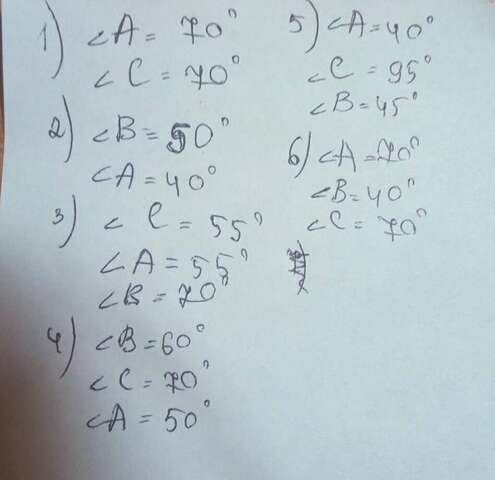 1) ∠A = 70°
∠C = 70°
2) ∠B = 50°
∠A = 40°
3) ∠C = 55°
∠A = 55°
∠B = 70°
4) ∠B = 60°
∠C = 70°
∠A = 50°
5) ∠A = 40°
∠C = 95°
∠B = 45°
6) ∠A = 70°
∠B = 40°
∠C = 70°